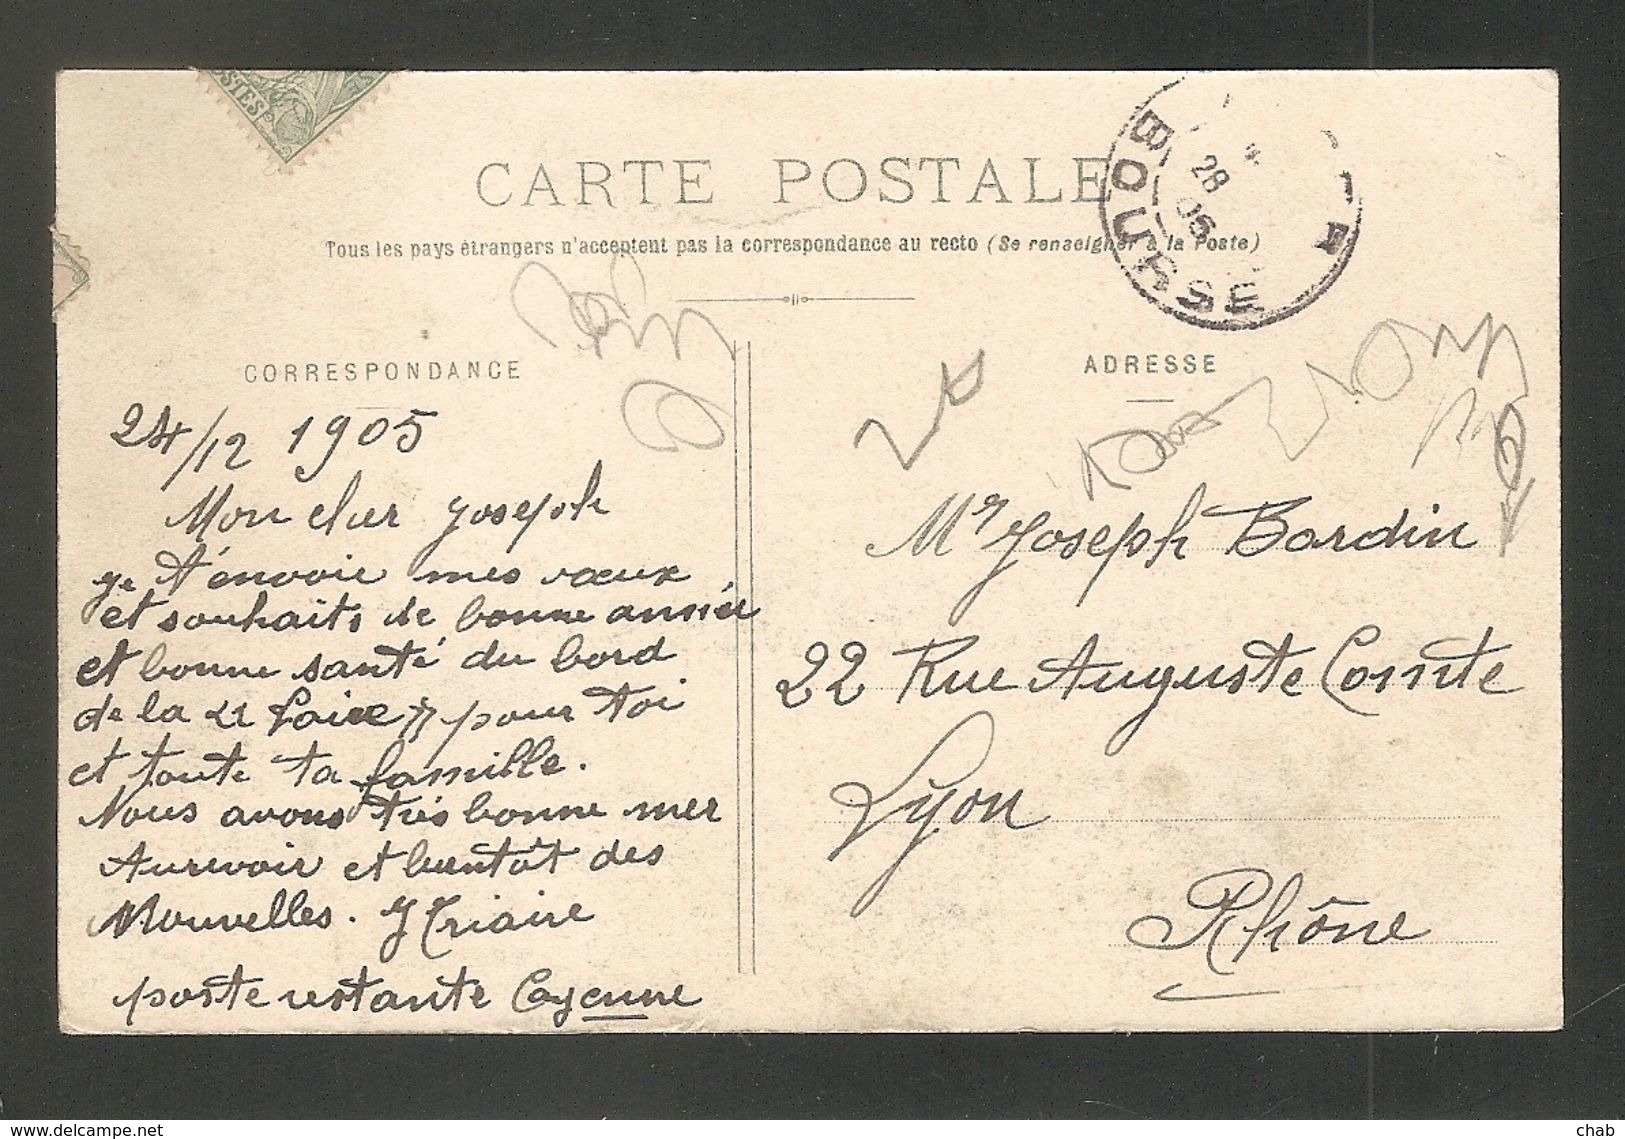 POSTES
CARTE POSTALE
Tous les pays étrangers n'acceptent pas la correspondance au recto (Se renseigner à la Poste)
BOURSE
28
05
CORRESPONDANCE
ADRESSE
24/12 1905
Mon cher Joseph
je t'envoie mes vœux
et souhaits de bonne année
et bonne santé du bord
de la « Loire » pour toi
et toute ta famille.
Nous avons très bonne mer
Aurevoir et bientôt des
Nouvelles.
poste restante Cayenne
Mr Joseph Bardin
22 Rue Auguste Comte
Lyon
Rhône
www.delcampe.net
chab